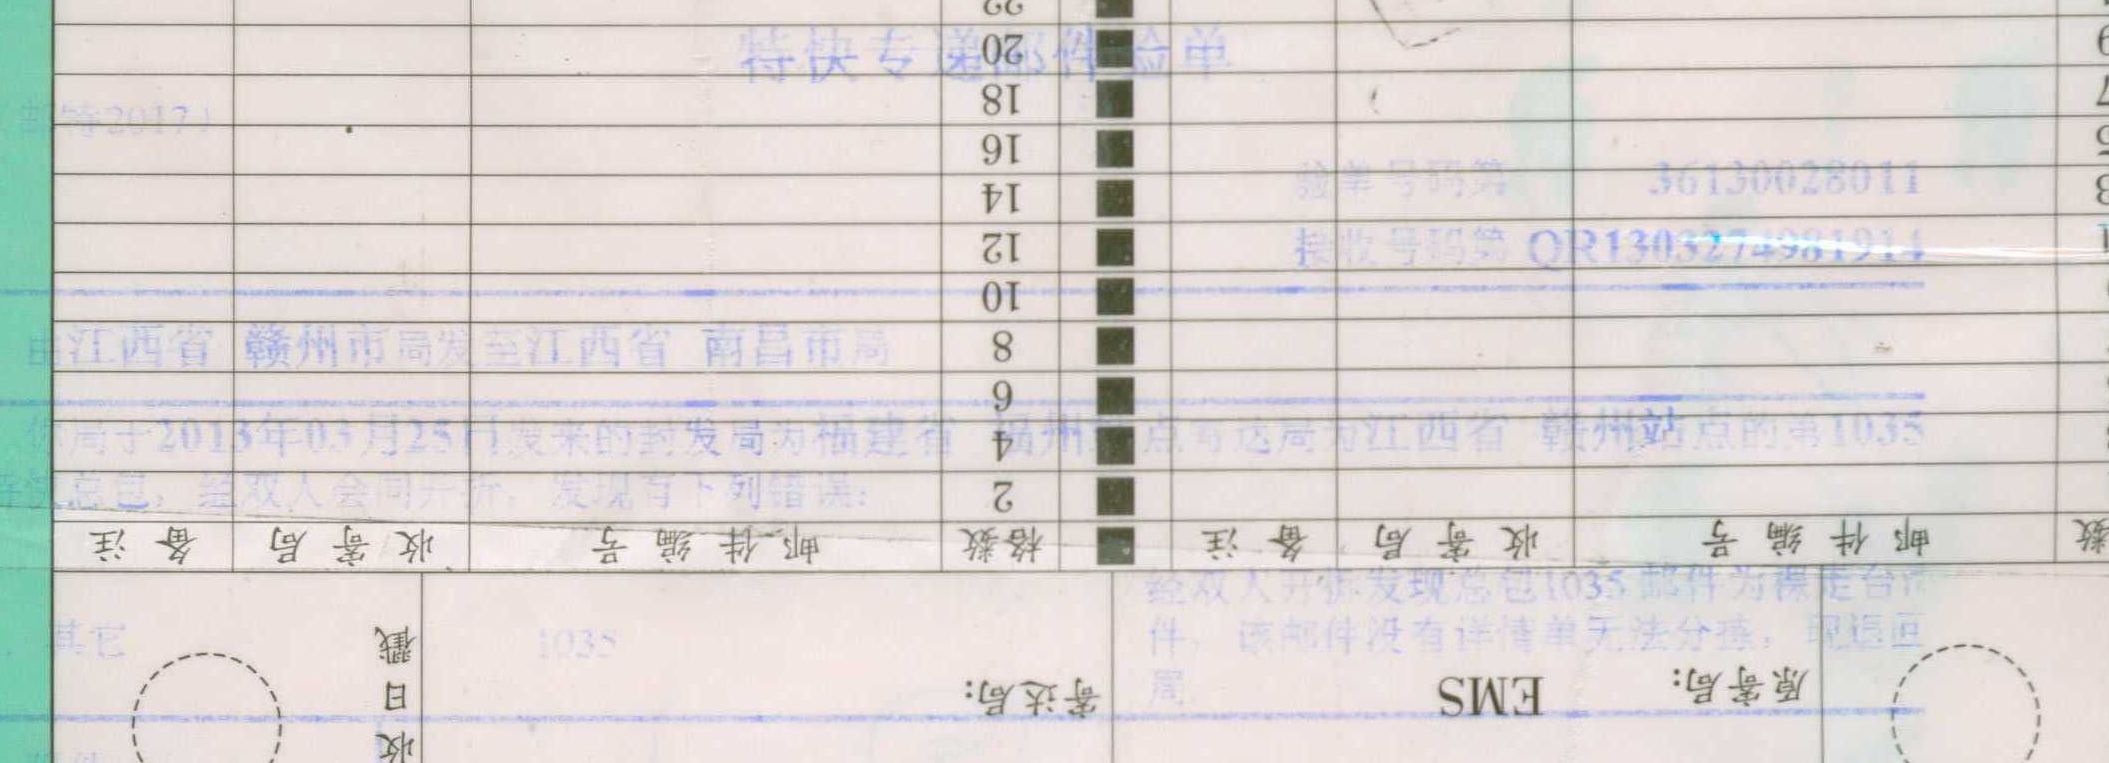 特快专递邮件验单
（邮特2017）
验单号码第 36130028011
接收号码第 QR1303274981914
由江西省 赣州市局发至江西省 南昌市局
你局于2013年03月25日发来的封发局为福建省 福州站点寄达局为江西省 赣州站点的第1035
特快总包，经双人会同开拆，发现有下列错误：
经双人开拆发现总包1035邮件为裸走台
件，该邮件没有详情单无法分拣，现退回
局
其它 1035
附件
原寄局： EMS 寄达局：
收 日 戳
格数 邮件编号 收寄局 备注 格数 邮件编号 收寄局 备注
2
4
6
8
10
12
14
16
18
20
22